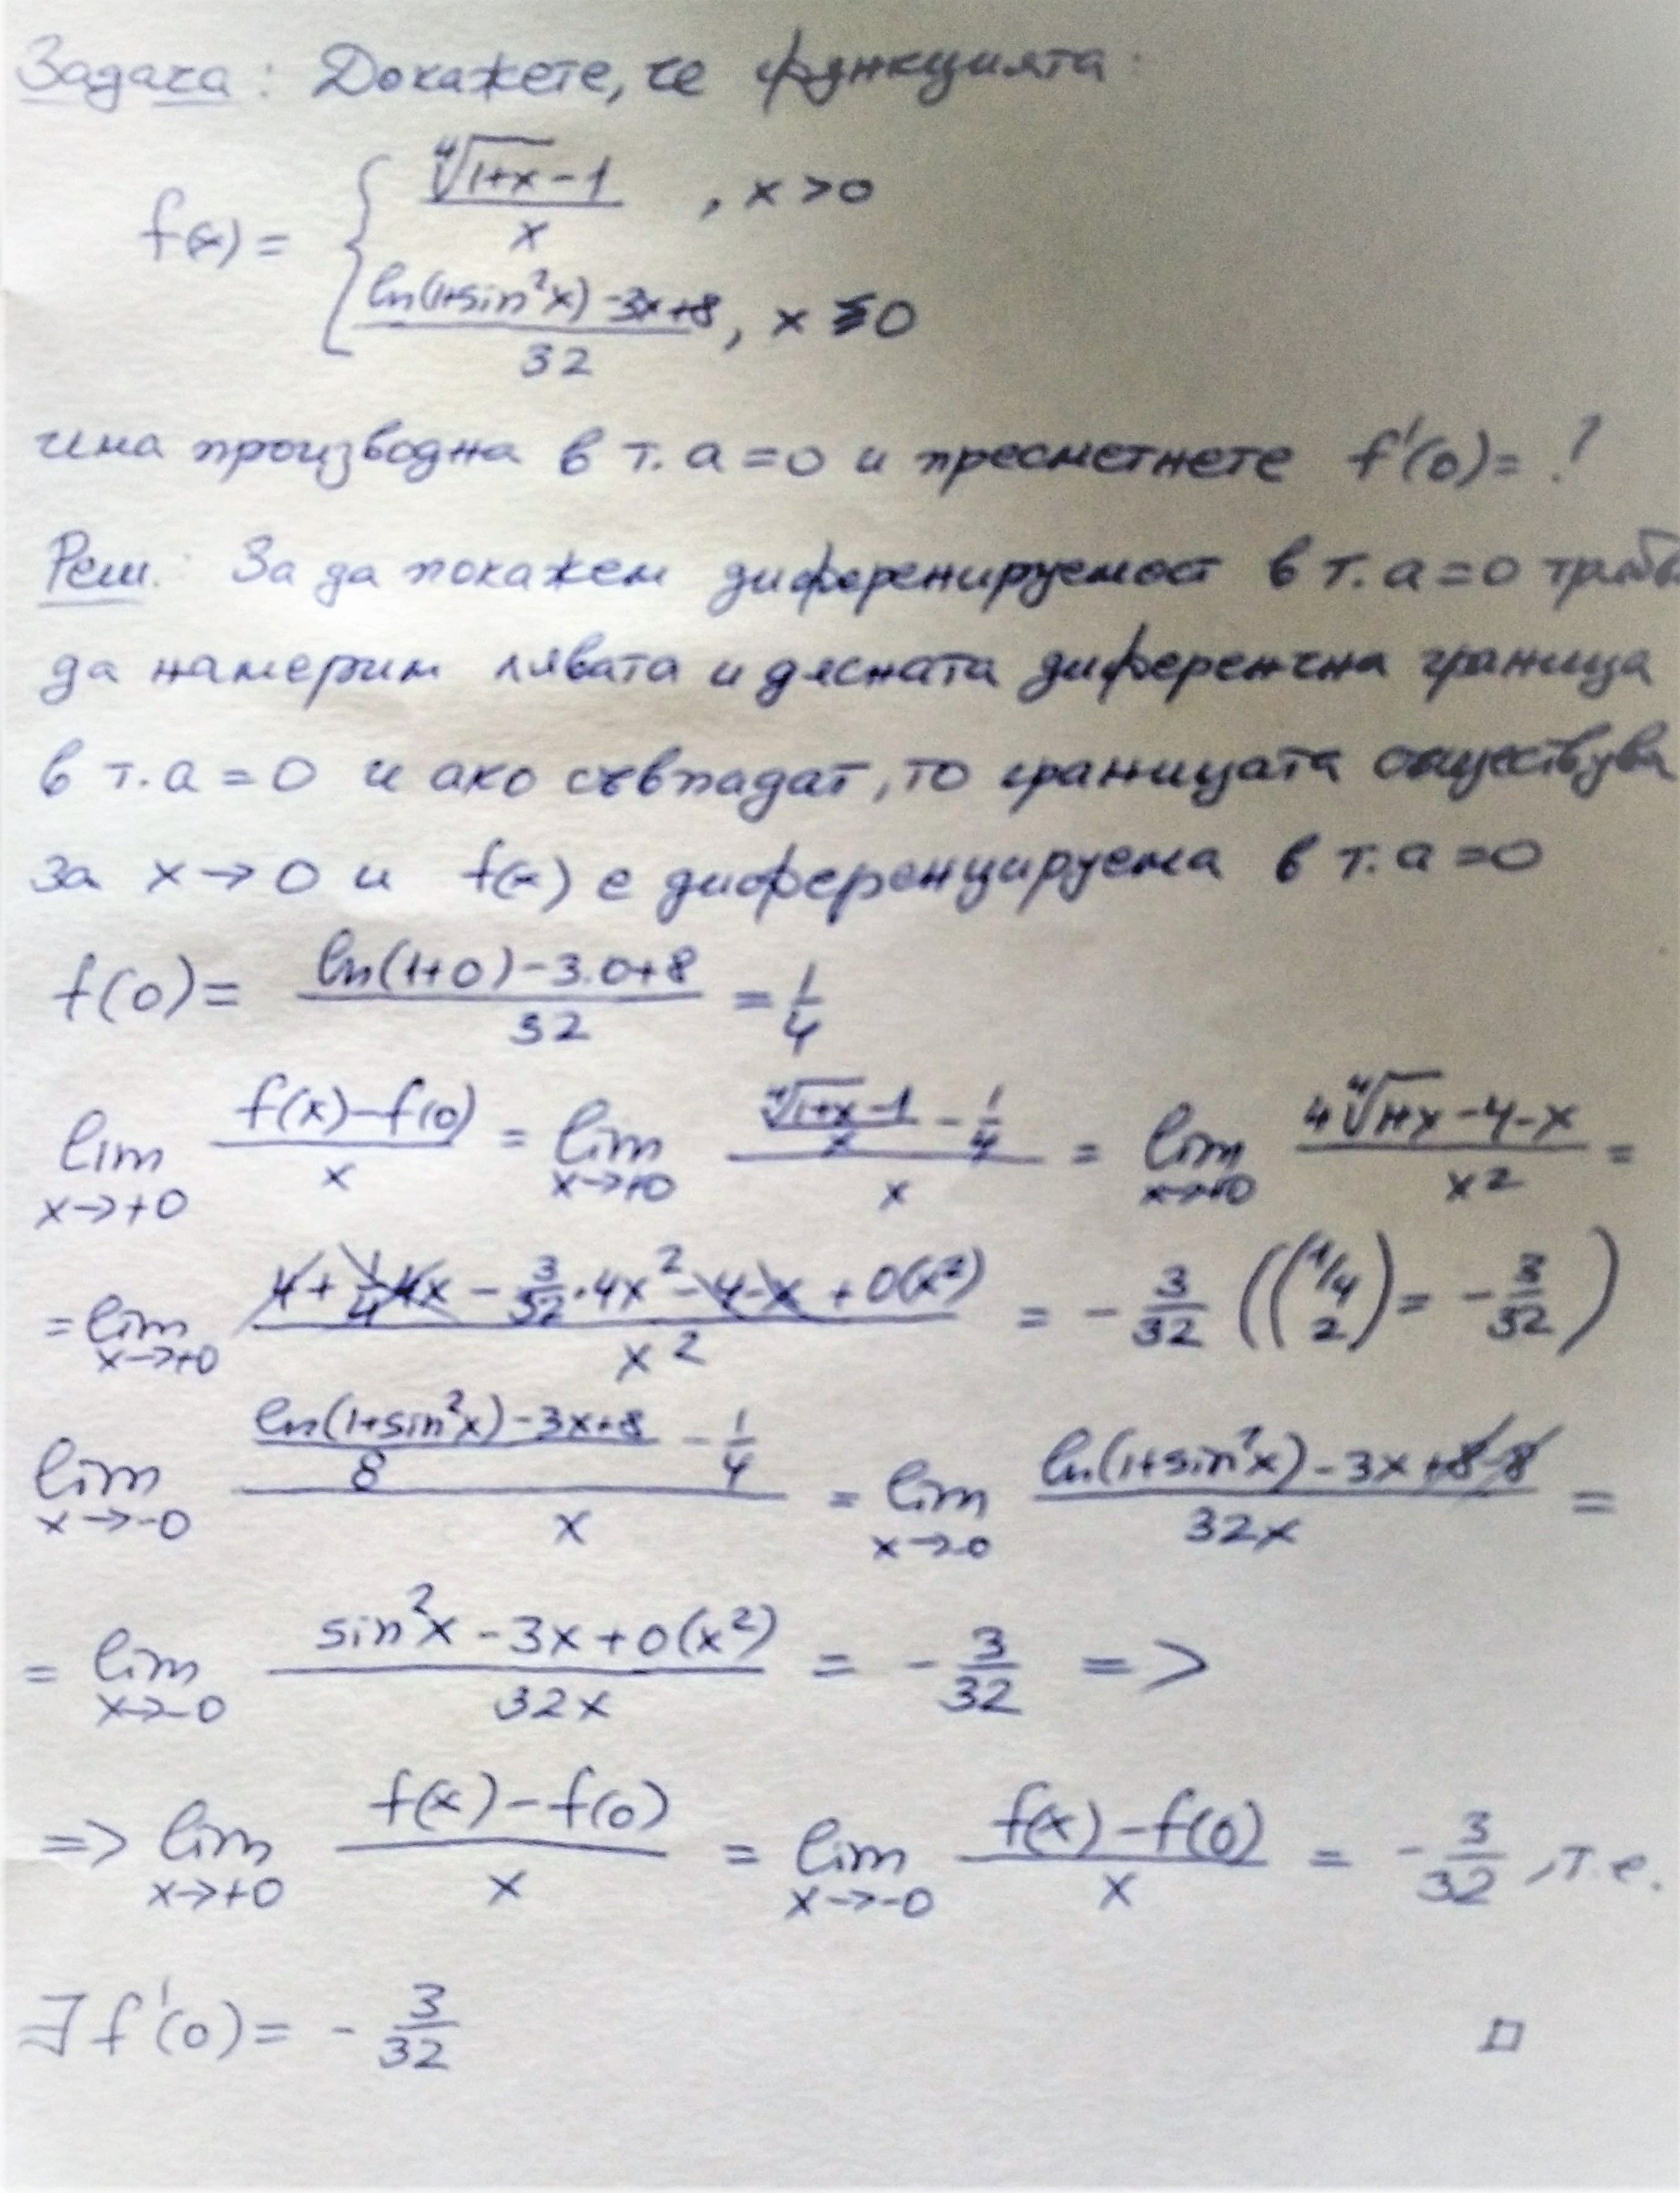 Задача: Докажете, че функцията:
f(x) = { (∜(1+x) - 1)/x , x > 0
(ln(1+sin²x) - 3x + 8)/32 , x ≤ 0
има производна в т. a = 0 и пресметнете f'(0) = ?
Реш.: За да покажем диференцируемост в т. a = 0 трябва
да намерим лявата и дясната диференчна граница
в т. a = 0 и ако съвпадат, то границата съществува
за x → 0 и f(x) е диференцируема в т. a = 0
f(0) = (ln(1+0) - 3.0 + 8)/32 = 1/4
lim x→+0 (f(x) - f(0))/x = lim x→+0 ((∜(1+x) - 1)/x - 1/4)/x = lim x→+0 (4∜(1+x) - 4 - x)/x² =
= lim x→+0 (4 + 1/4 4x - 3/32 · 4x² - 4 - x + 0(x²))/x² = - 3/32 ((1/4 2) = - 3/32)
lim x→-0 ((ln(1+sin²x) - 3x + 8)/8 - 1/4)/x = lim x→-0 (ln(1+sin²x) - 3x + 8 - 8)/32x =
= lim x→-0 (sin²x - 3x + 0(x²))/32x = - 3/32 =>
=> lim x→+0 (f(x) - f(0))/x = lim x→-0 (f(x) - f(0))/x = - 3/32 , т.е.
∃ f'(0) = - 3/32 □